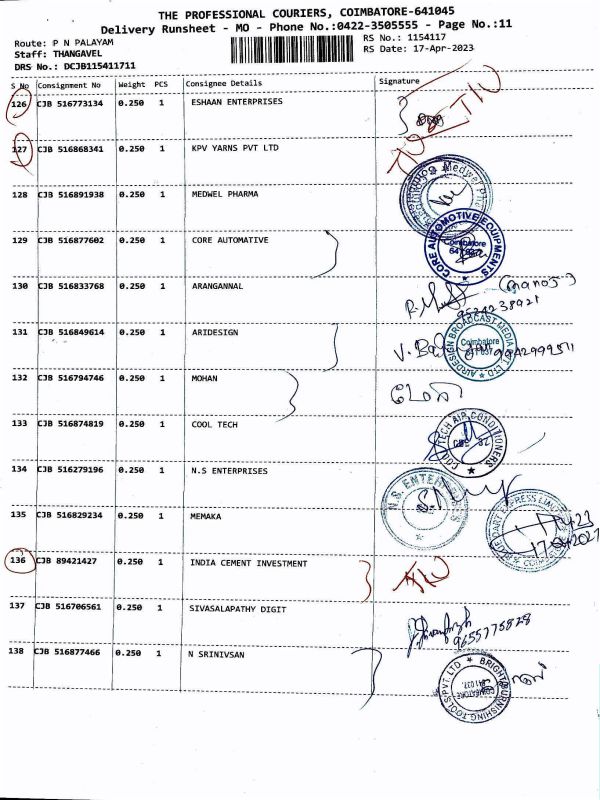 THE PROFESSIONAL COURIERS, COIMBATORE-641045
Delivery Runsheet - MO - Phone No.:0422-3505555 - Page No.:11
Route: P N PALAYAM
Staff: THANGAVEL
DRS No.: DCJB115411711
RS No.: 1154117
RS Date: 17-Apr-2023
S No Consignment No Weight PCS Consignee Details Signature
126 CJB 516773134 0.250 1 ESHAAN ENTERPRISES
127 CJB 516868341 0.250 1 KPV YARNS PVT LTD
128 CJB 516891938 0.250 1 MEDWEL PHARMA
129 CJB 516877602 0.250 1 CORE AUTOMATIVE
CORE AUTOMOTIVE EQUIPMENTS
Coimbatore
130 CJB 516833768 0.250 1 ARANGANNAL
(manoj)
9524238921
131 CJB 516849614 0.250 1 ARIDESIGN
AIRDESIGN BROADCAST MEDIA PVT LTD
Coimbatore
132 CJB 516794746 0.250 1 MOHAN
133 CJB 516874819 0.250 1 COOL TECH
COOL TECH AIR CONDITIONERS
134 CJB 516279196 0.250 1 N.S ENTERPRISES
N.S. ENTERPRISES
135 CJB 516829234 0.250 1 MEMAKA
136 CJB 89421427 0.250 1 INDIA CEMENT INVESTMENT
137 CJB 516706561 0.250 1 SIVASALAPATHY DIGIT
9655775828
138 CJB 516877466 0.250 1 N SRINIVSAN
BRIGHT BURNISHING TOOLS PVT. LTD
COIMBATORE
641 037.